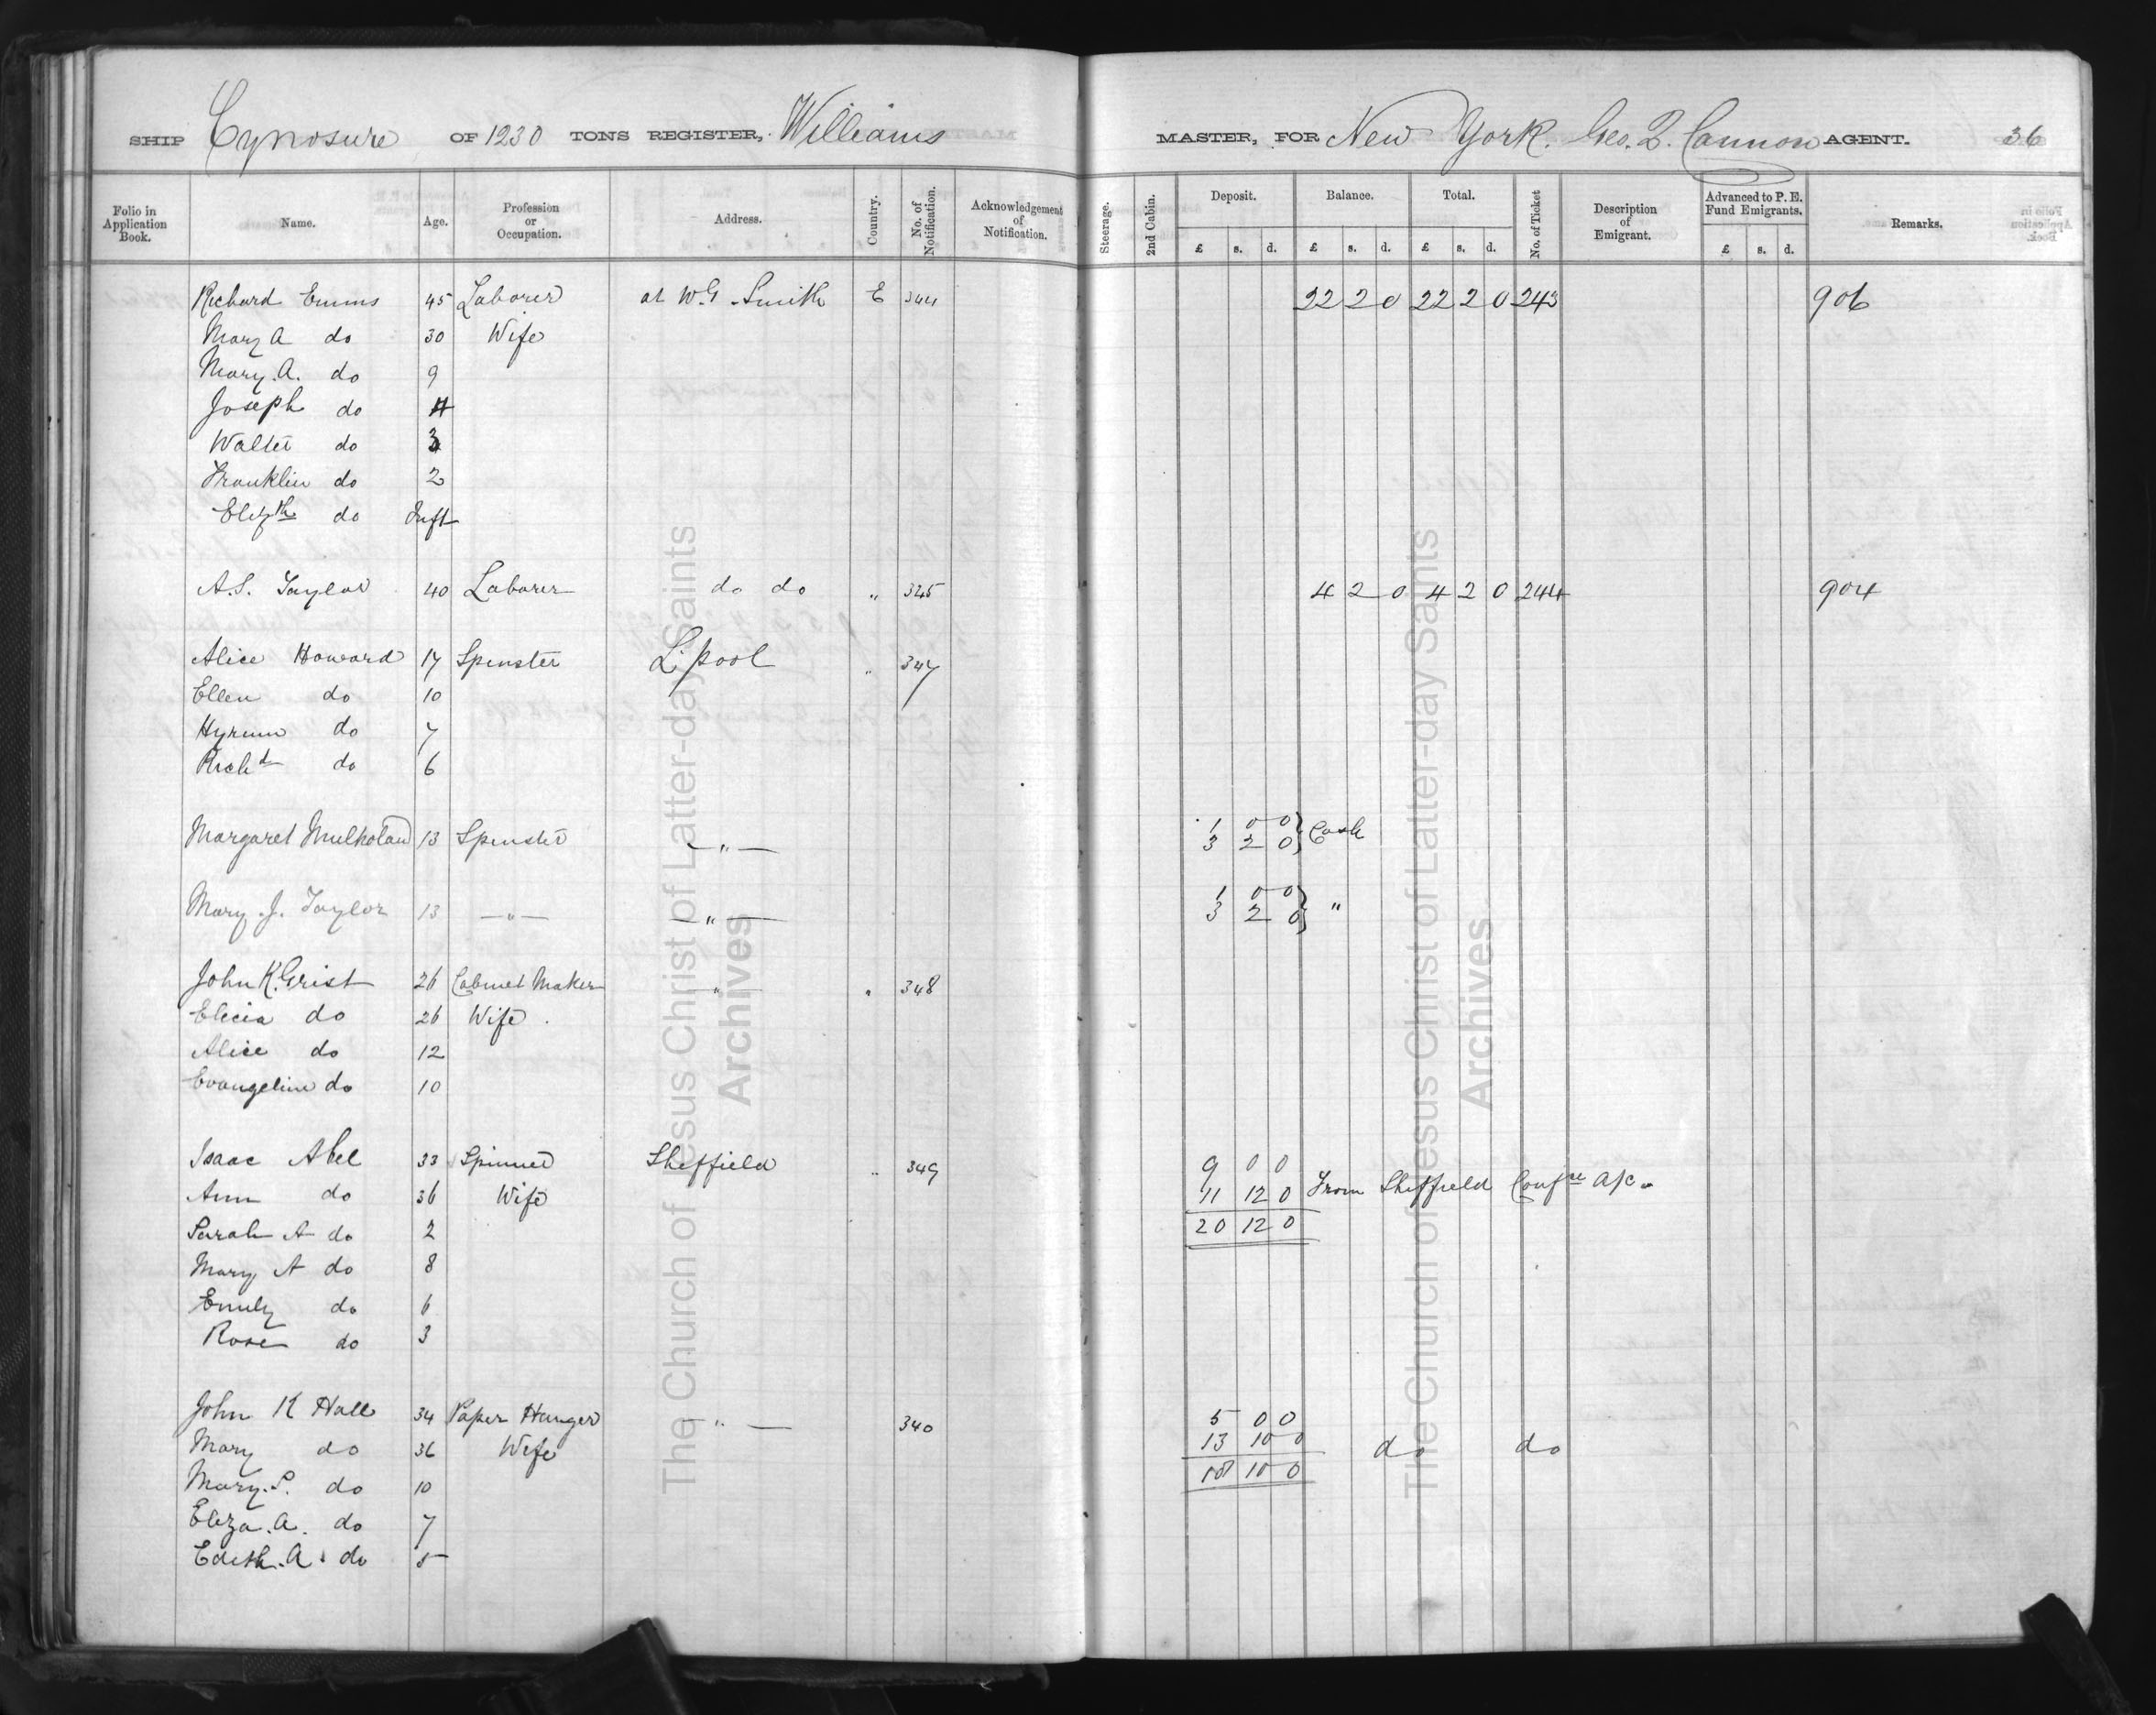 SHIP Cynosure OF 1230 TONS REGISTER, Williams MASTER, FOR New York. Geo. Q. Cannon AGENT. 36
Folio in Application Book. Name. Age. Profession or Occupation. Address. Country. No. of Notification. Acknowledgement of Notification. Steerage. 2nd Cabin. Deposit. £ s. d. Balance. £ s. d. Total. £ s. d. No. of Ticket Description of Emigrant. Advanced to P. E. Fund Emigrants. £ s. d. Remarks.
Richard Emms 45 Laborer at W. G. Smith E 344 22 2 0 22 2 0 243 906
Mary A do 30 Wife
Mary. A. do 9
Joseph do 4
Walter do 3
Franklin do 2
Elizth do Inft
A. S. Taylor 40 Laborer do do " 345 4 2 0 4 2 0 244 904
Alice Howard 17 Spinster L.pool " 347
Ellen do 10
Hyrum do 7
Richd do 6
Margaret Mulholand 13 Spinster — " — 1 0 0 } Cash
3 2 0
Mary. J. Taylor 13 — " — — " — 1 0 0 } "
3 2 0
John K. Grist 26 Cabinet Maker — " — " 348
Elicia do 26 Wife
Alice do 12
Evangeline do 10
Isaac Abel 33 Spinner Sheffield " 349 9 0 0
Ann do 36 Wife 11 12 0 From Sheffield Confce a/c.
Sarah A do 2 20 12 0
Mary A do 8
Emily do 6
Rose do 3
John K Hall 34 Paper Hanger — " — 340 5 0 0
Mary do 36 Wife 13 10 0 do do
Mary. S. do 10 18 10 0
Eliza. A. do 7
Edith. A. do 5
The Church of Jesus Christ of Latter-day Saints
Archives
The Church of Jesus Christ of Latter-day Saints
Archives